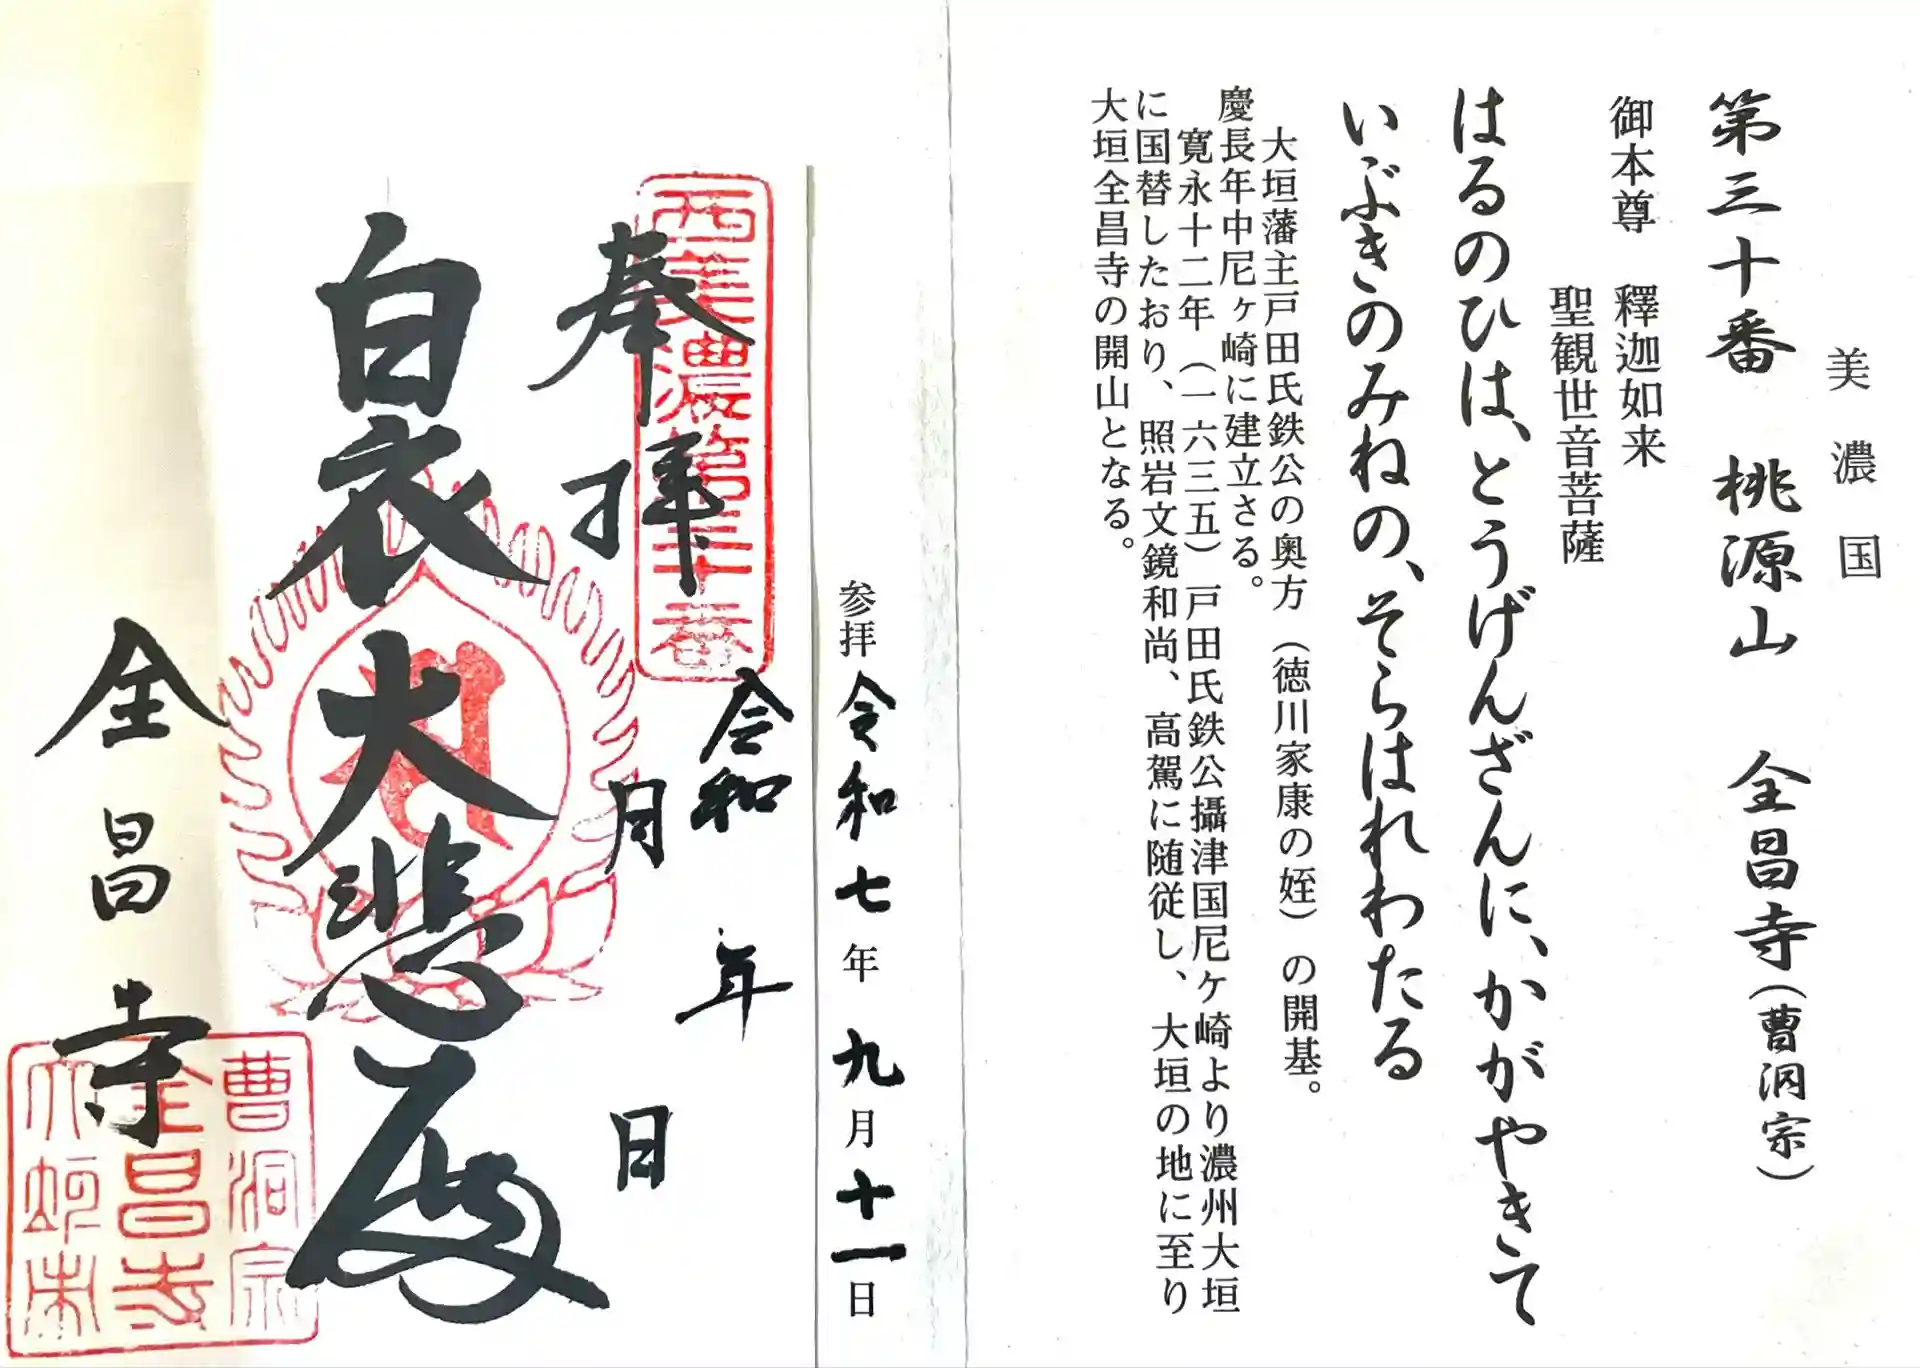 美濃国
第三十番 桃源山 全昌寺(曹洞宗)
御本尊 釋迦如来
聖観世音菩薩
はるのひは、とうげんざんに、かがやきて
いぶきのみねの、そらはれわたる
大垣藩主戸田氏鉄公の奥方(徳川家康の姪)の開基。
慶長年中尼ヶ崎に建立さる。
寛永十二年(一六三五)戸田氏鉄公攝津国尼ヶ崎より濃州大垣
に国替したおり、照岩文鏡和尚、高駕に随従し、大垣の地に至り
大垣全昌寺の開山となる。
参拝 令和七年九月十一日
西美濃第三十番
奉拝
令和 年
月 日
白衣大悲殿
全昌寺
曹洞宗
全昌寺